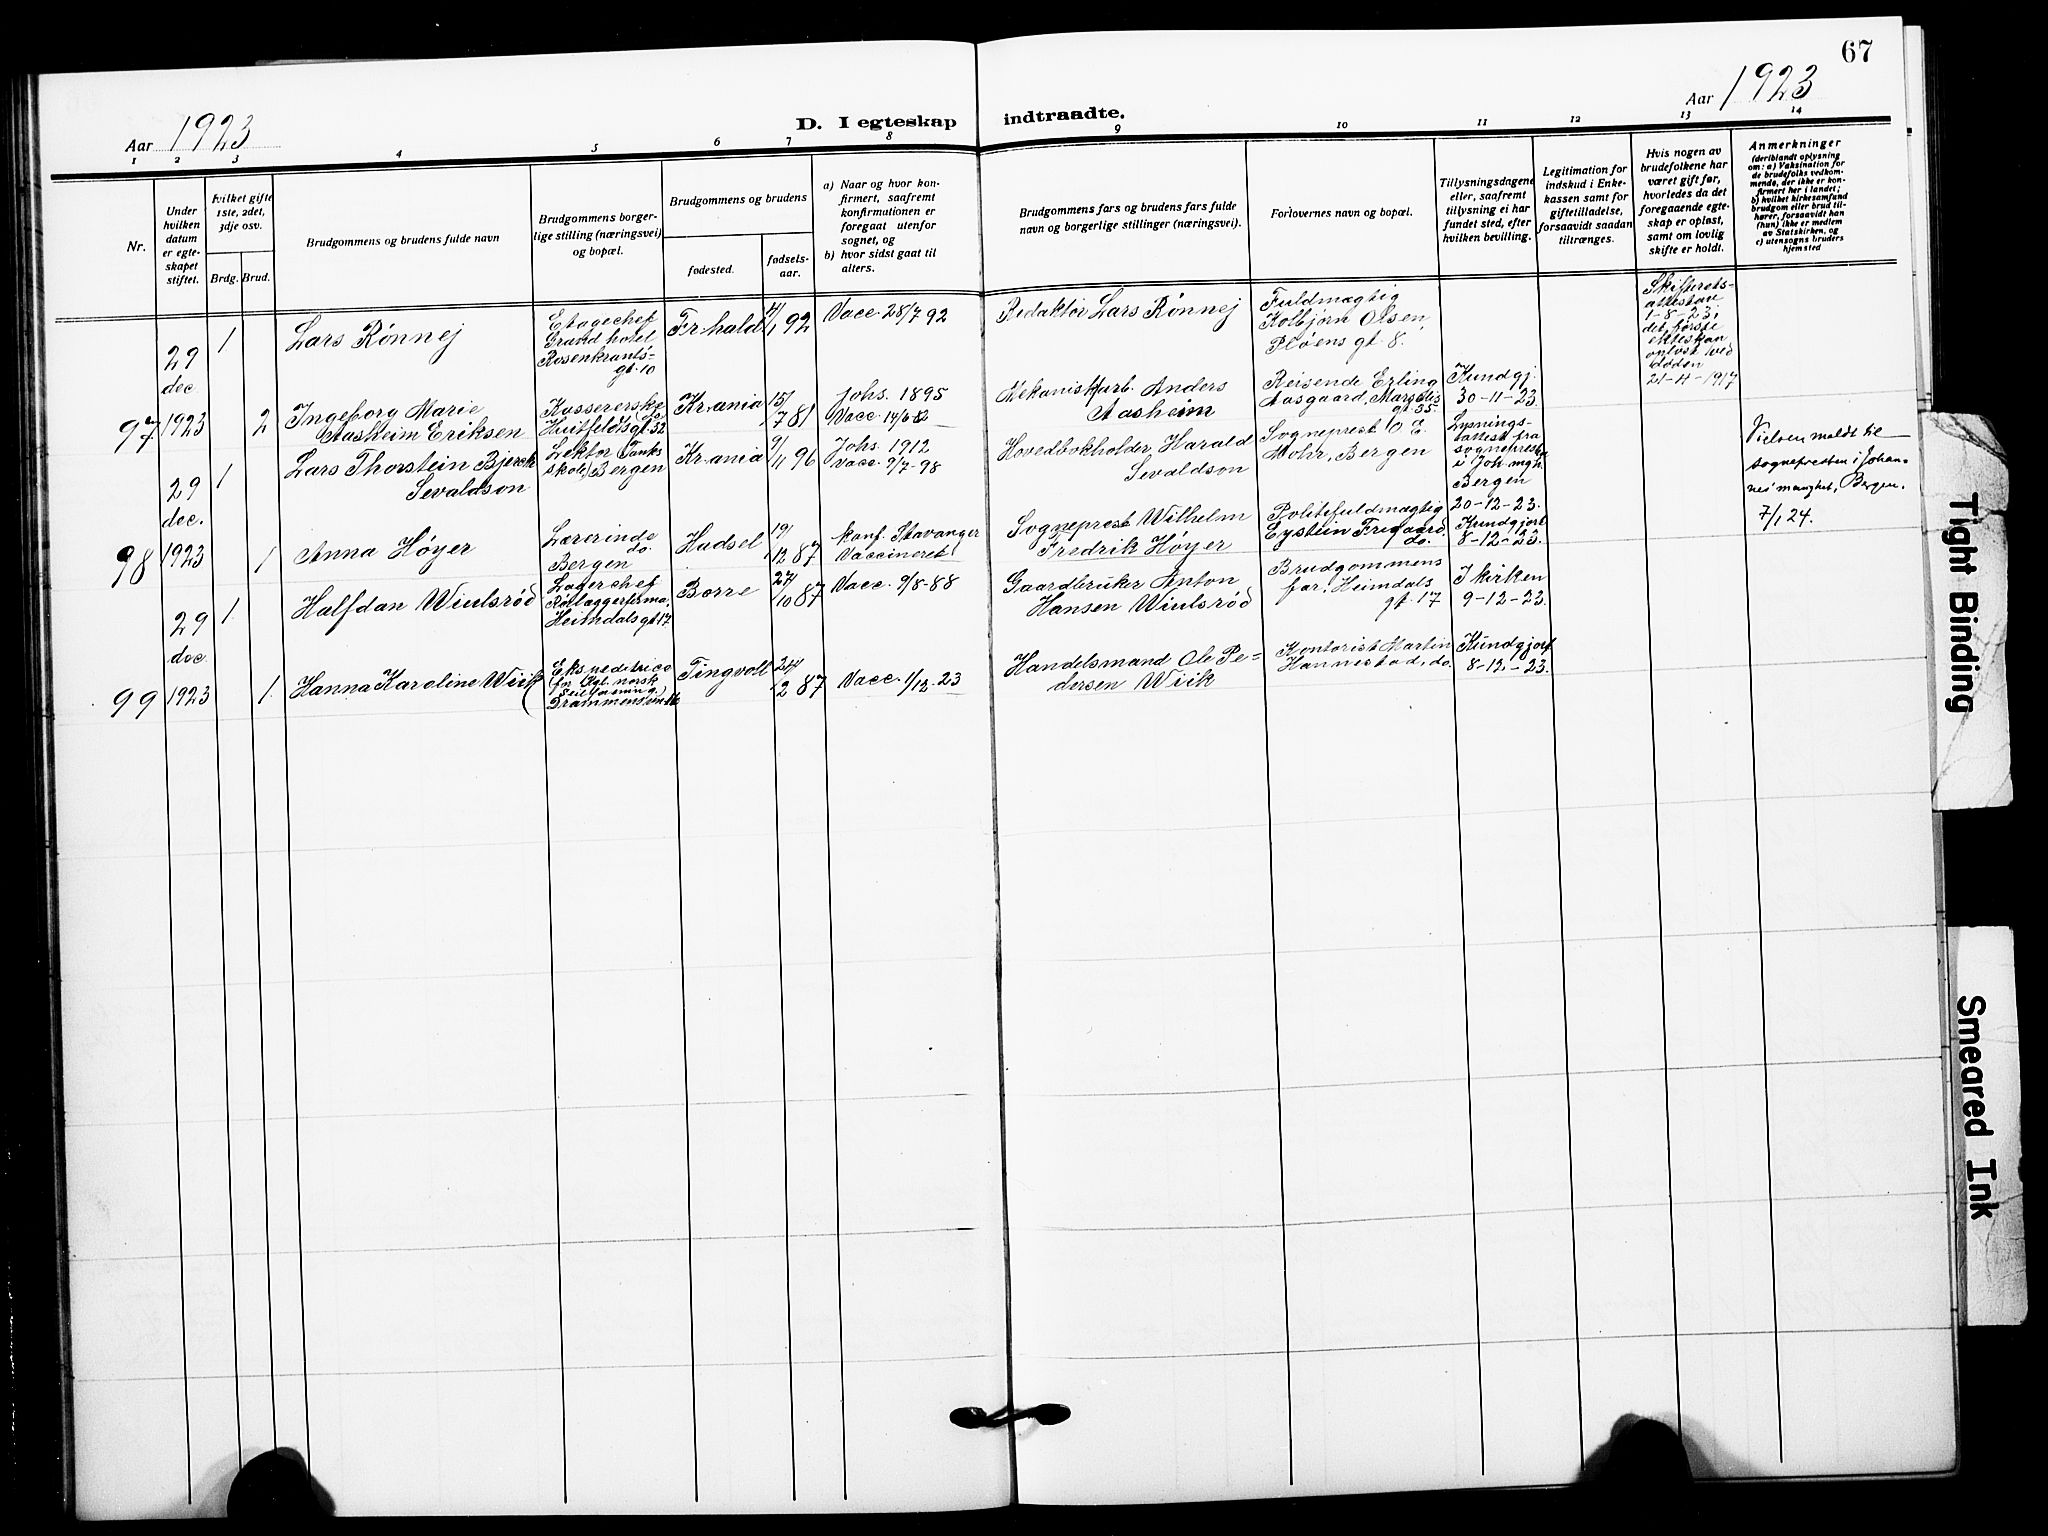 67
Aar 1923
D. I egteskap indtraadte.
Aar 1923
1 2 3 4 5 6 7 8 9 10 11 12 13 14
Nr.
Under hvilken datum er egteskapet stiftet.
Hvilket gifte 1ste, 2det, 3dje osv.
Brdg. Brud.
Brudgommens og brudens fulde navn
Brudgommens borger-
lige stilling (næringsvei)
og bopæl.
Brudgommens og brudens
fødested.
fødsels-
aar.
a) Naar og hvor kon-
firmert, saafremt
konfirmationen er
foregaat utenfor
sognet, og
b) hvor sidst gaat til
alters.
Brudgommens fars og brudens fars fulde
navn og borgerlige stillinger (næringsvei).
Forlovernes navn og bopæl.
Tillysningsdagene
eller, saafremt
tillysning ei har
fundet sted, efter
hvilken bevilling.
Legitimation for
indskud i Enke-
kassen samt for
giftetilladelse,
forsaavidt saadan
tiltrænges.
Hvis nogen av
brudefolkene har
været gift før,
hvorledes da det
foregaaende egte-
skap er opløst,
samt om lovlig
skifte er holdt.
Anmerkninger
(deriblandt oplysning
om: a) Vaksination for
de brudefolks vedkom-
mende, der ikke er kon-
firmert her i landet;
b) hvilket kirkesamfund
brudgom eller brud til-
hører, forsaavidt han
(hun) ikke er medlem
av Statskirken, og
c) utensogns bruders
hjemsted
97
29
dec.
1923
1
Lars Rønnej
Etagechef
Grand hotel
Rosenkrants-
gt. 10
Fr.hald
92
Vacc. 28/7 92
Redaktør Lars Rønnej
Fuldmægtig
Kolbjørn Olsen,
Pløens gt. 8.
Skifterets-
attest av
1-8-23,
det første
ekteskap
opløst ved
døden
21-4-1917
2
Ingeborg Marie
Aasheim Eriksen
Kassererske
Huitfeldtsgt. 52
Kr.ania
15/
7 81
Johs. 1895
Vacc. 14/6-82
Mekanisk arb. Anders
Aasheim
Reisende Erling
Aasgaard, Marselis
gt. 35.
Kundgj.
30-11-23.
98
29
dec.
1923
1
Lars Thorstein Bjerck
Sevaldson
Lektor Tanks
skole, Bergen
Kr.ania
9/
11 96
Johs. 1912
Vacc. 9/7-98
Hovedbokholder Harald
Sevaldson
Sogneprest O E.
Mohr, Bergen
Lysnings-
attest fra
sogneprest
i Joh. mgh.
Bergen
20-12-23.
Vielsen meldt til
sognepresten i Johan-
nes menighet, Bergen.
7/1 24.
1
Anna Høyer
Lærerinde
do.
Bergen
Hadsel
19/
12 87
Konf. Stavanger
Vaccineret
Sogneprest Wilhelm
Fredrik Høyer
Politifuldmægtig
Eystein Frigaard,
do.
Kundgjort
8-12-23.
99
29
dec.
1923
1
Halfdan Wiulsrød
Lagerchef
Heimdals gt 17
Borre
27/
10 87
Vacc. 9/8-88
Gaardbruker Anton
Hansen Wiulsrød
Brudgommens
far, Heimdals
gt. 17
I kirken
9-12-23.
1
Hanna Karoline Wiik
Ekspeditrice
Tingvoll
24/
2 87
Vacc. 1/12-23
Handelsmand Ole Pe-
dersen Wiik
Kontorist Martin
Hannestad, do.
Kundgjort
8-12-23.
Tight Binding
Smeared Ink